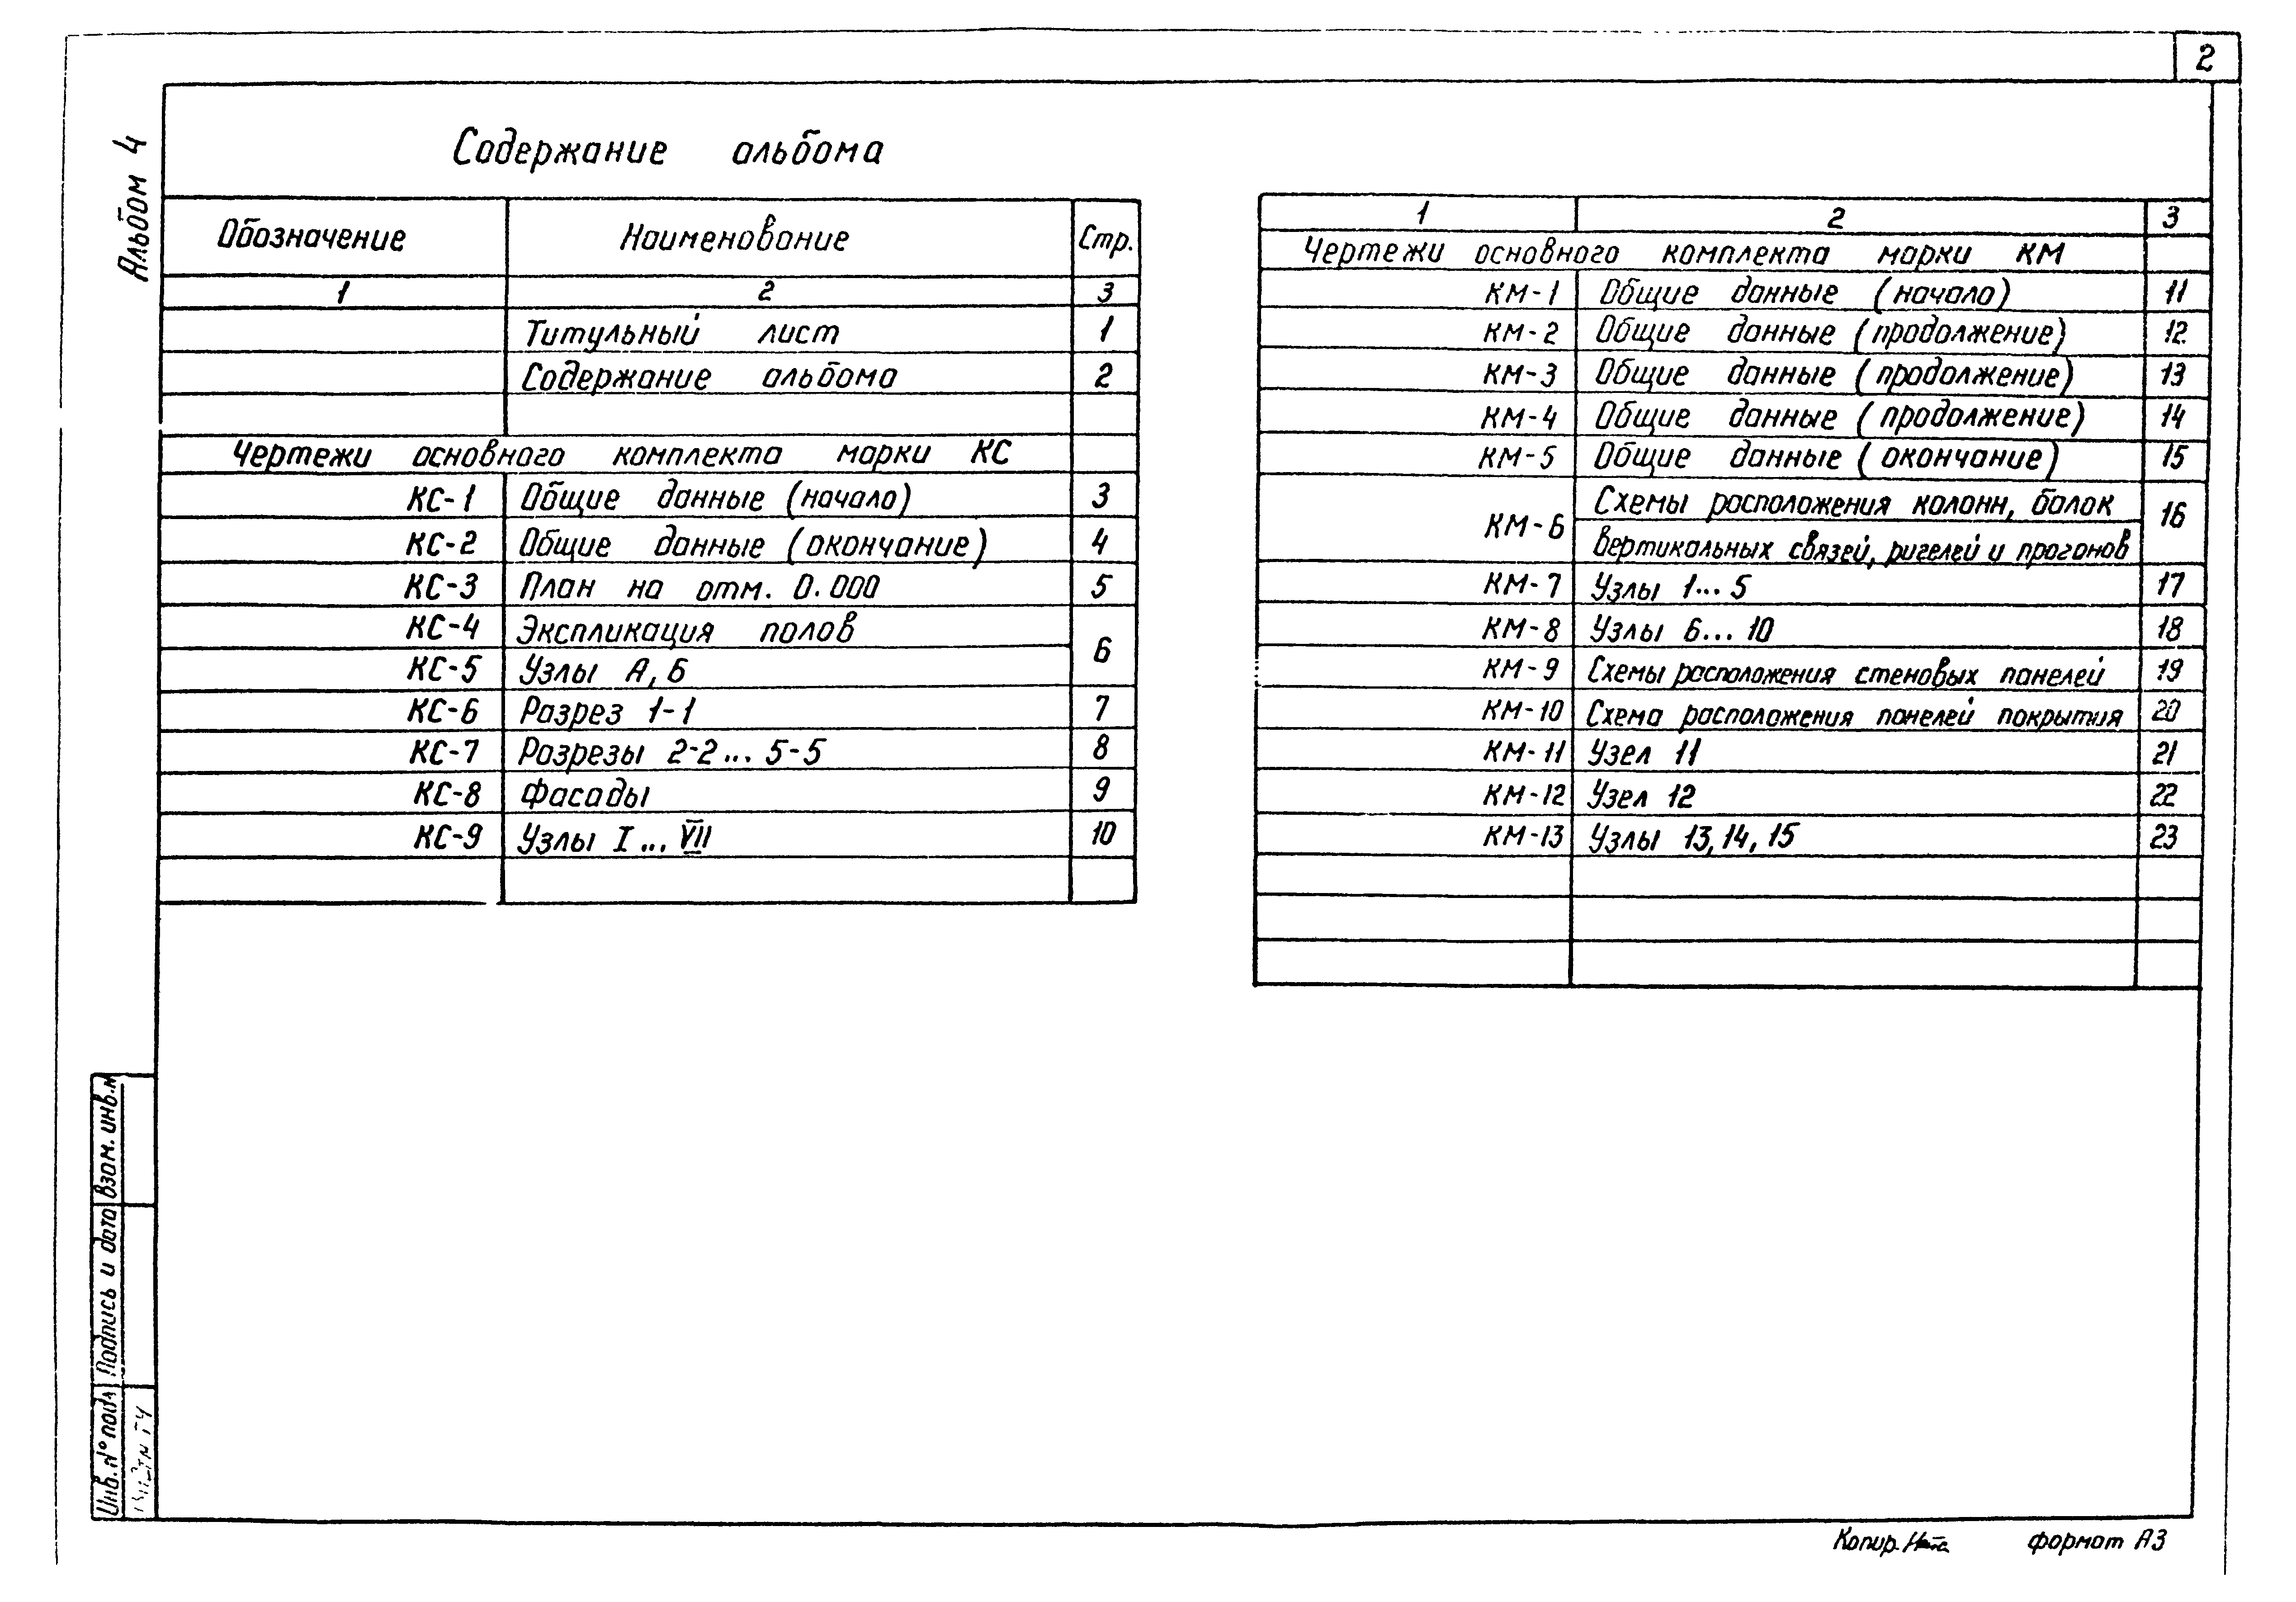 2
Альбом 4
Содержание альбома
Обозначение Наименование Стр.
1 2 3
Титульный лист 1
Содержание альбома 2
Чертежи основного комплекта марки КС
КС-1 Общие данные (начало) 3
КС-2 Общие данные (окончание) 4
КС-3 План на отм. 0.000 5
КС-4 Экспликация полов 6
КС-5 Узлы А, Б
КС-6 Разрез 1-1 7
КС-7 Разрезы 2-2... 5-5 8
КС-8 Фасады 9
КС-9 Узлы I ... VII 10
1 2 3
Чертежи основного комплекта марки КМ
КМ-1 Общие данные (начало) 11
КМ-2 Общие данные (продолжение) 12
КМ-3 Общие данные (продолжение) 13
КМ-4 Общие данные (продолжение) 14
КМ-5 Общие данные (окончание) 15
КМ-6 Схемы расположения колонн, балок 16
вертикальных связей, ригелей и прогонов
КМ-7 Узлы 1... 5 17
КМ-8 Узлы 6... 10 18
КМ-9 Схемы расположения стеновых панелей 19
КМ-10 Схема расположения панелей покрытия 20
КМ-11 Узел 11 21
КМ-12 Узел 12 22
КМ-13 Узлы 13, 14, 15 23
Взам. инв. №
Подпись и дата
Инв. № подл
Копир. формат А3